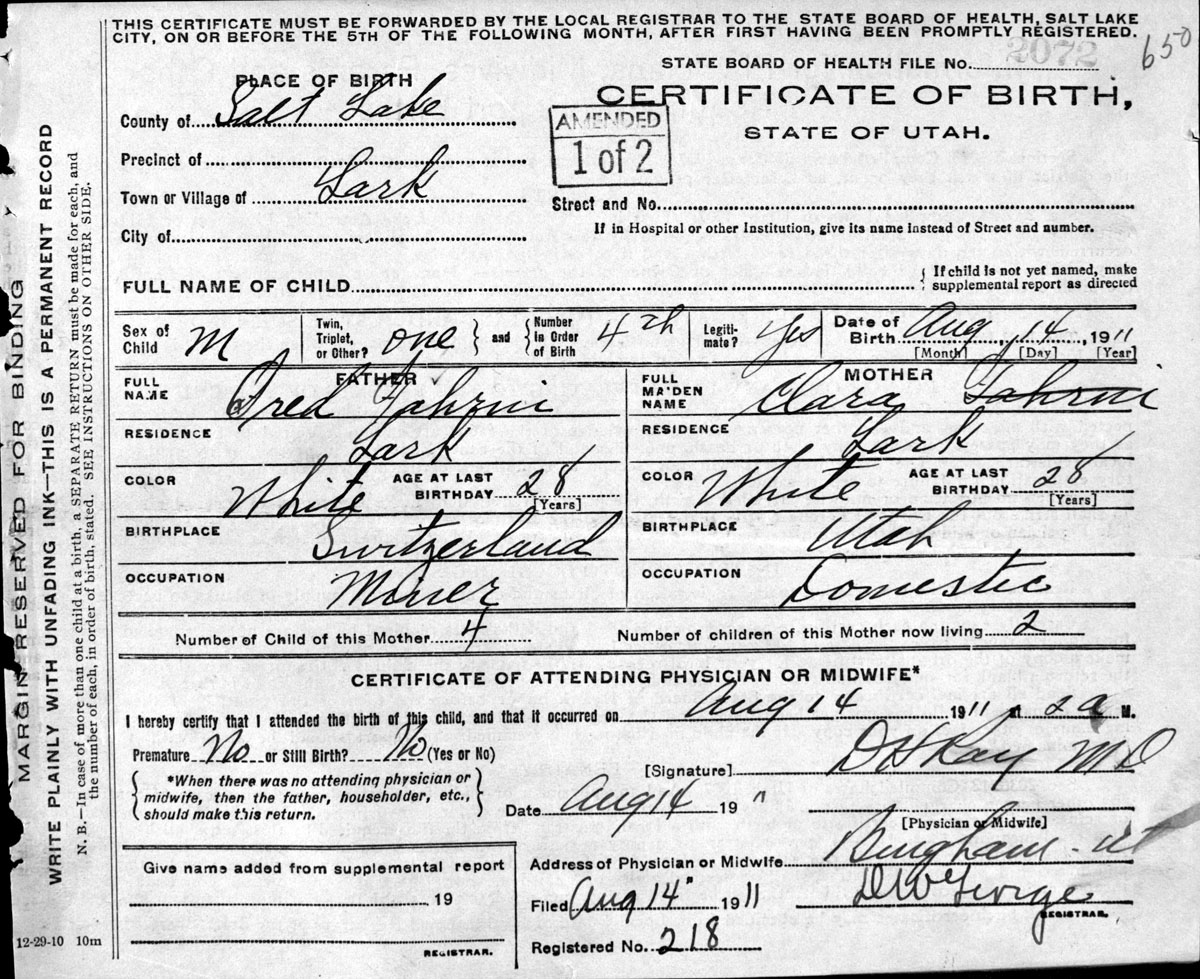 THIS CERTIFICATE MUST BE FORWARDED BY THE LOCAL REGISTRAR TO THE STATE BOARD OF HEALTH, SALT LAKE
CITY, ON OR BEFORE THE 5TH OF THE FOLLOWING MONTH, AFTER FIRST HAVING BEEN PROMPTLY REGISTERED.
650
STATE BOARD OF HEALTH FILE No. 2072
PLACE OF BIRTH
CERTIFICATE OF BIRTH,
STATE OF UTAH.
AMENDED
1 of 2
County of Salt Lake
Precinct of
Town or Village of Lark
City of
Street and No.
If in Hospital or other Institution, give its name instead of Street and number.
FULL NAME OF CHILD
{ If child is not yet named, make
supplemental report as directed
Sex of
Child M
Twin,
Triplet,
or Other? one } and { Number
in Order
of Birth 4th
Legiti-
mate? Yes
Date of
Birth Aug 14, 1911
[Month] [Day] [Year]
FATHER
FULL
NAME Fred Fahrni
RESIDENCE Lark
COLOR White
AGE AT LAST
BIRTHDAY 28
[Years]
BIRTHPLACE Switzerland
OCCUPATION Miner
MOTHER
FULL
MAIDEN
NAME Clara Fahrni
RESIDENCE Lark
COLOR White
AGE AT LAST
BIRTHDAY 28
[Years]
BIRTHPLACE Utah
OCCUPATION Domestic
Number of Child of this Mother 4
Number of children of this Mother now living 2
CERTIFICATE OF ATTENDING PHYSICIAN OR MIDWIFE*
I hereby certify that I attended the birth of this child, and that it occurred on Aug 14 1911 at 2a M.
Premature No or Still Birth? No (Yes or No)
{ *When there was no attending physician or
midwife, then the father, householder, etc.,
should make this return. }
[Signature] D H Ray MD
Date Aug 14 19 11
[Physician or Midwife]
Address of Physician or Midwife Bingham - Ut
Filed Aug 14" 1911
REGISTRAR.
Registered No. 218
Give name added from supplemental report
19
REGISTRAR.
12-29-10 10m
MARGIN RESERVED FOR BINDING
WRITE PLAINLY WITH UNFADING INK—THIS IS A PERMANENT RECORD
N. B.—In case of more than one child at a birth, a SEPARATE RETURN must be made for each, and
the number of each, in order of birth, stated. SEE INSTRUCTIONS ON OTHER SIDE.